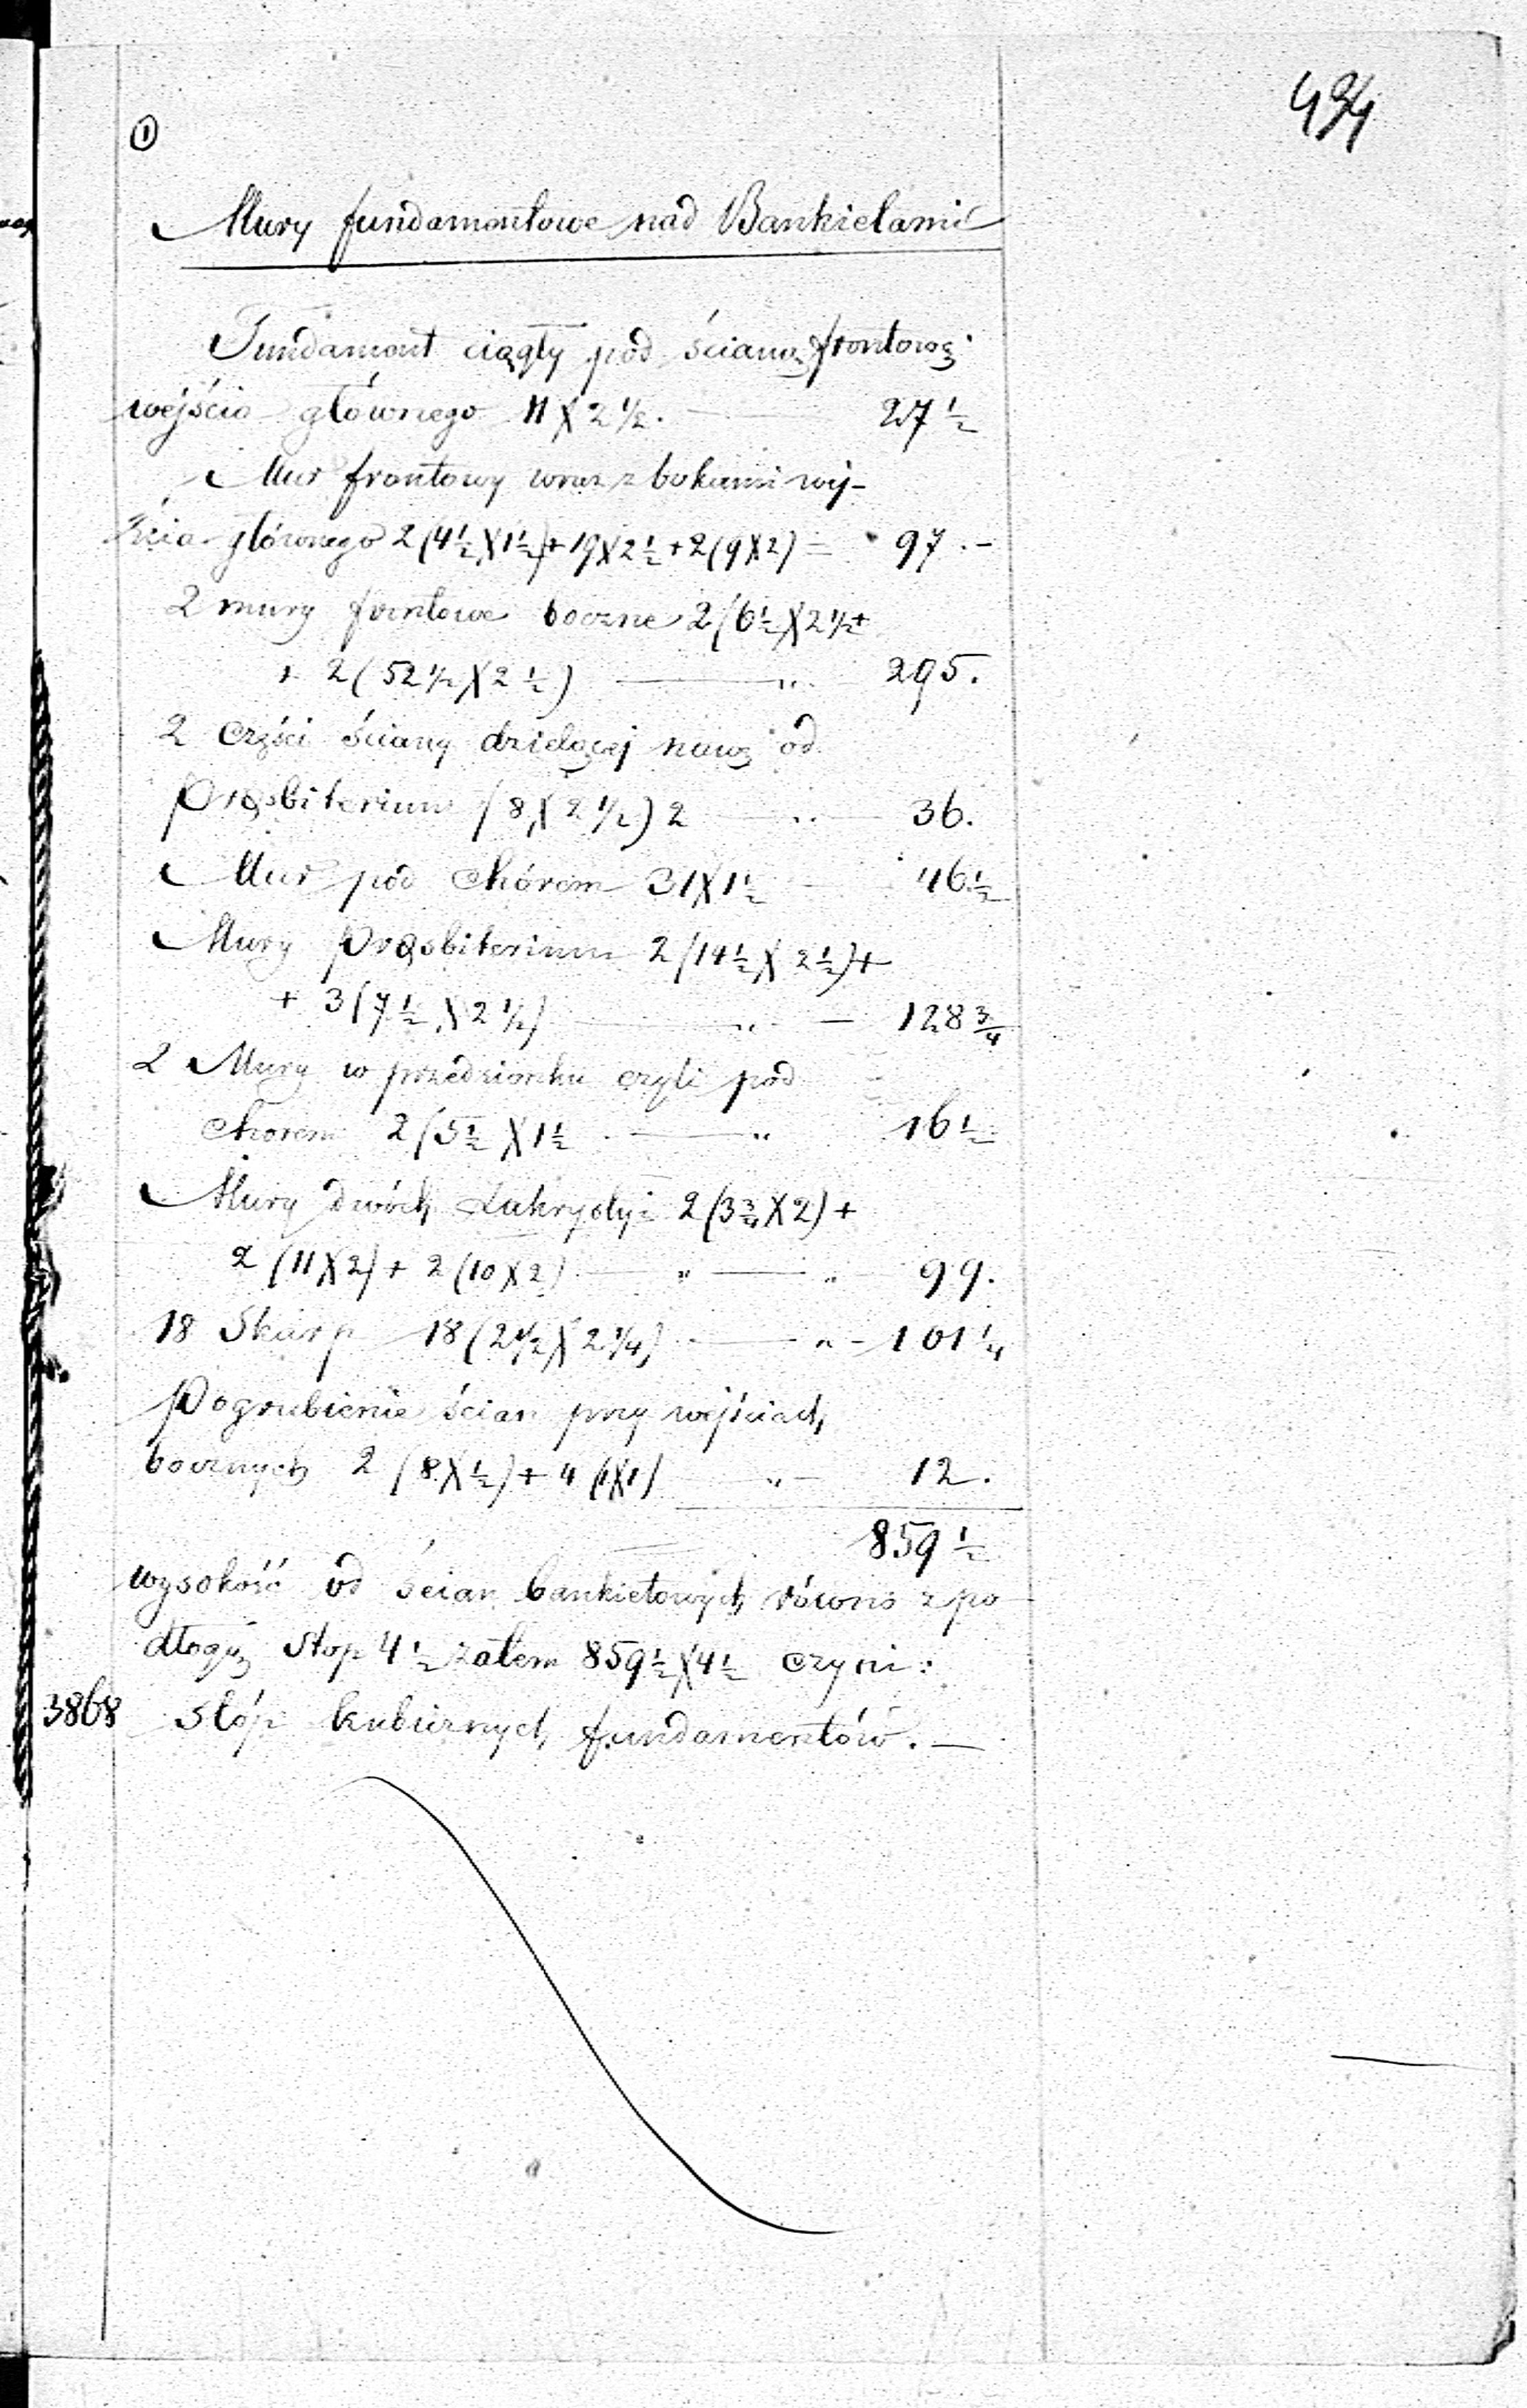 494
①
Mury fundamentowe nad Bankietami
Fundament ciągły pod ścianą frontową
wejścia głównego 11 X 2 1/2. 27 1/2
Mur frontowy wraz z bokami wej-
ścia głównego 2 (4 1/2 X 1 1/2) + 19 X 2 1/2 + 2 (9 X 2) = 97. -
2 mury frontowe boczne 2 (6 1/2 X 2 1/2 +
+ 2 (52 1/2 X 2 1/2) — " 295.
2 części ściany dzielącej nawę od
Presbiterium (8 X 2 1/2) 2 — " — 36.
Mur pod chórem 31 X 1 1/2 — 46 1/2
Mury Presbiterium 2 (14 1/2 X 2 1/2) +
+ 3 (7 1/2 X 2 1/2) — " — 128 3/4
2 Mury w przedsionku czyli pod
chorem 2 (5 1/2 X 1 1/2 — " 16 1/2
Mury dwóch Zakrystyi 2 (3 3/4 X 2) +
2 (11 X 2) + 2 (10 X 2) — " — " 99.
18 Skarp 18 (2 1/2 X 2 1/4) — " — 101 1/4
Pogrubienie ścian przy wejściach
bocznych 2 (8 X 1/2) + 4 (1 X 1) — " — 12.
859 1/2
wysokość od ścian bankietowych równo z po
dłogą stop 4 1/2 zatem 859 1/2 X 4 1/2 czyni:
3868 stóp kubicznych fundamentów. —